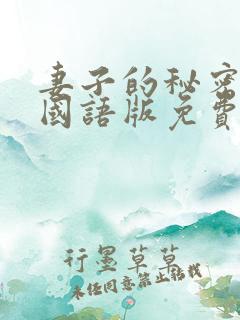 妻子的秘密
國語版免費
行墨草草
未经同意禁止转载